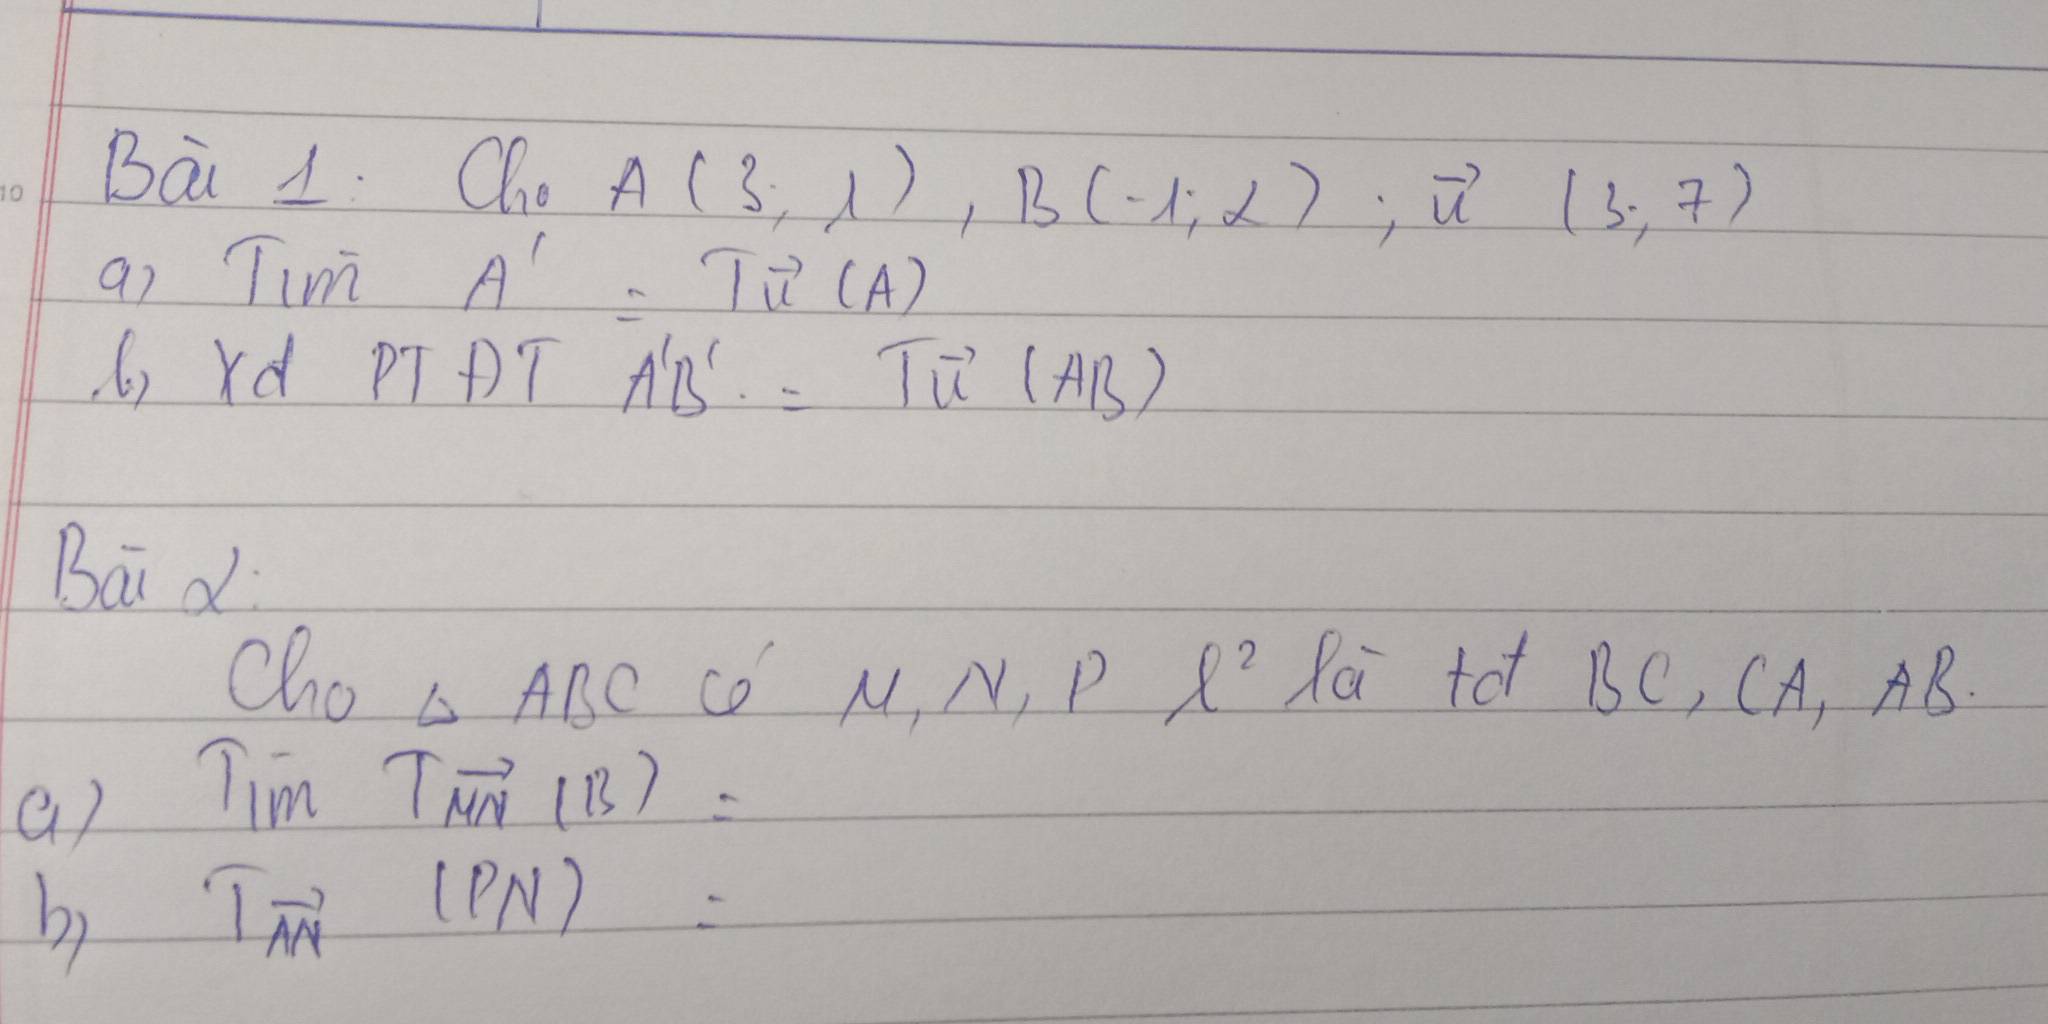 10
Bài 1: Cho A (3; 1), B (-1; 2); u⃗ (3; 7)
a) Tìm A' = Tu⃗ (A)
b) Xđ PT ĐT A'B' = Tu⃗ (AB)
Bài 2:
Cho △ ABC có M, N, P l² là tđ BC, CA, AB.
a) Tìm T_MN⃗ (B) =
b) T_AN⃗ (PN) =